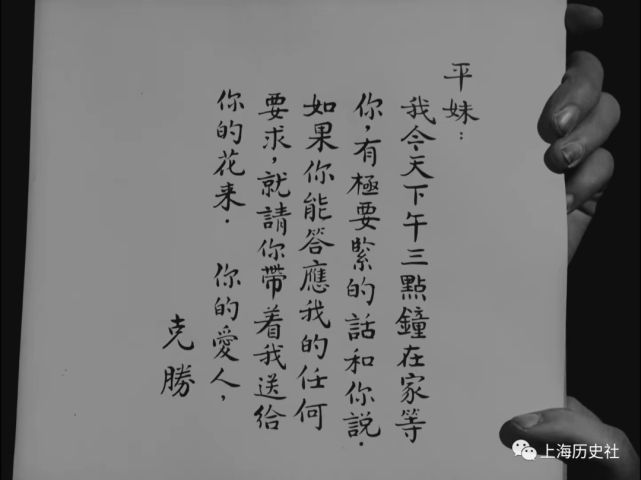 平妹：
我今天下午三點鐘在家等
你，有極要緊的話和你說．
如果你能答應我的任何
要求，就請你帶着我送給
你的花来． 你的愛人，
克勝
上海历史社